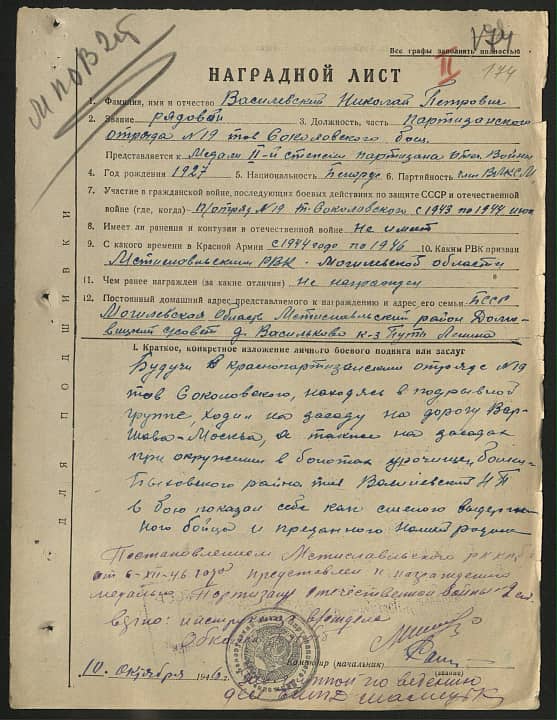 МПОВ25
174
Все графы заполнять полностью
II
174
НАГРАДНОЙ ЛИСТ
1. Фамилия, имя и отчество Василевский Николай Петрович
2. Звание рядовой 3. Должность, часть Партизанского
отряда №19 тов Соколовского боец
Представляется к Медали II-й степени партизана Отеч Войны
4. Год рождения 1927 5. Национальность Белорус 6. Партийность член ВЛКСМ
7. Участие в гражданской войне, последующих боевых действиях по защите СССР и отечественной
войне (где, когда) П/отряд №19 т. Соколовского с 1943 по 1944 июль
8. Имеет ли ранения и контузии в отечественной войне Не имеет
9. С какого времени в Красной Армии с 1944 года по 1946 10. Каким РВК призван
Мстиславльским РВК - Могилевской области
11. Чем ранее награжден (за какие отличия) Не награжден
12. Постоянный домашний адрес представляемого к награждению и адрес его семьи: БССР
Могилевская область Мстиславльский район
с/совет д. Васильково к-з Путь Ленина
ДЛЯ ПОДШИВКИ
I. Краткое, конкретное изложение личного боевого подвига или заслуг
Будучи в краснопартизанском отряде №19
тов Соколовского, находясь в подрывной
группе, ходил на засаду на дорогу Вар-
шава-Москва, а также на засадах
при окружении в болотах урочище
Быховского района тов Василевский Н П
в бою показал себя как смелого выдержан-
ного бойца и преданного нашей родине
Постановлением Мстиславльского
от 6-XII-46 года представлен к награждению
медалью Партизану Отечественной войны 2 ст
отдела
Командир (начальник)
(звание)
10. октября 1946 г.